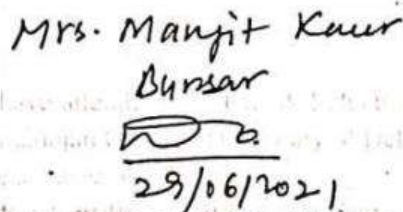 Mrs. Manjit Kaur
Bursar
29/06/2021